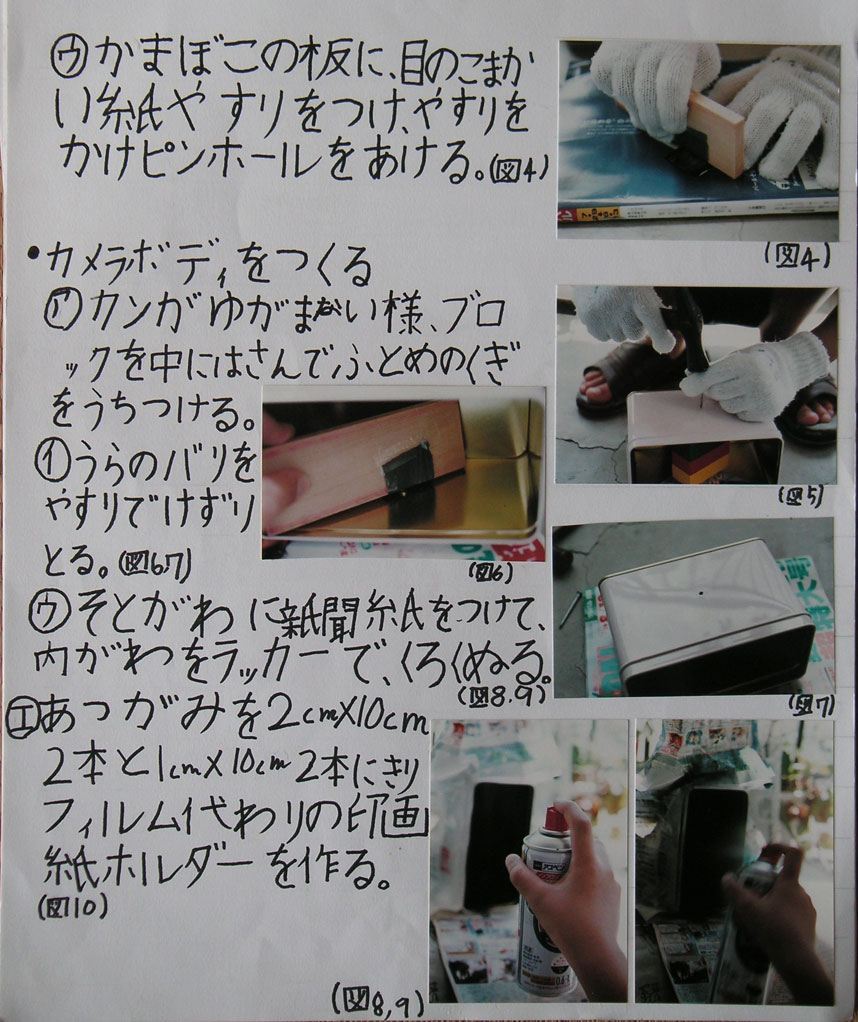 ㋒かまぼこの板に、目のこまか
い紙やすりをつけ、やすりを
かけピンホールをあける。(図4)
(図4)
•カメラボディをつくる
㋐カンがゆがまない様、ブロ
ックを中にはさんでふとめのくぎ
をうちつける。
(図5)
㋑うらのバリを
やすりでけずり
とる。(図6,7)
(図6)
㋒そとがわに新聞紙をつけて、
内がわをラッカーで、くろくぬる。
(図8,9)
(図7)
㋓あつがみを2cm×10cm
2本と1cm×10cm2本にきり
フィルム代わりの印画
紙ホルダーを作る。
(図10)
(図8,9)